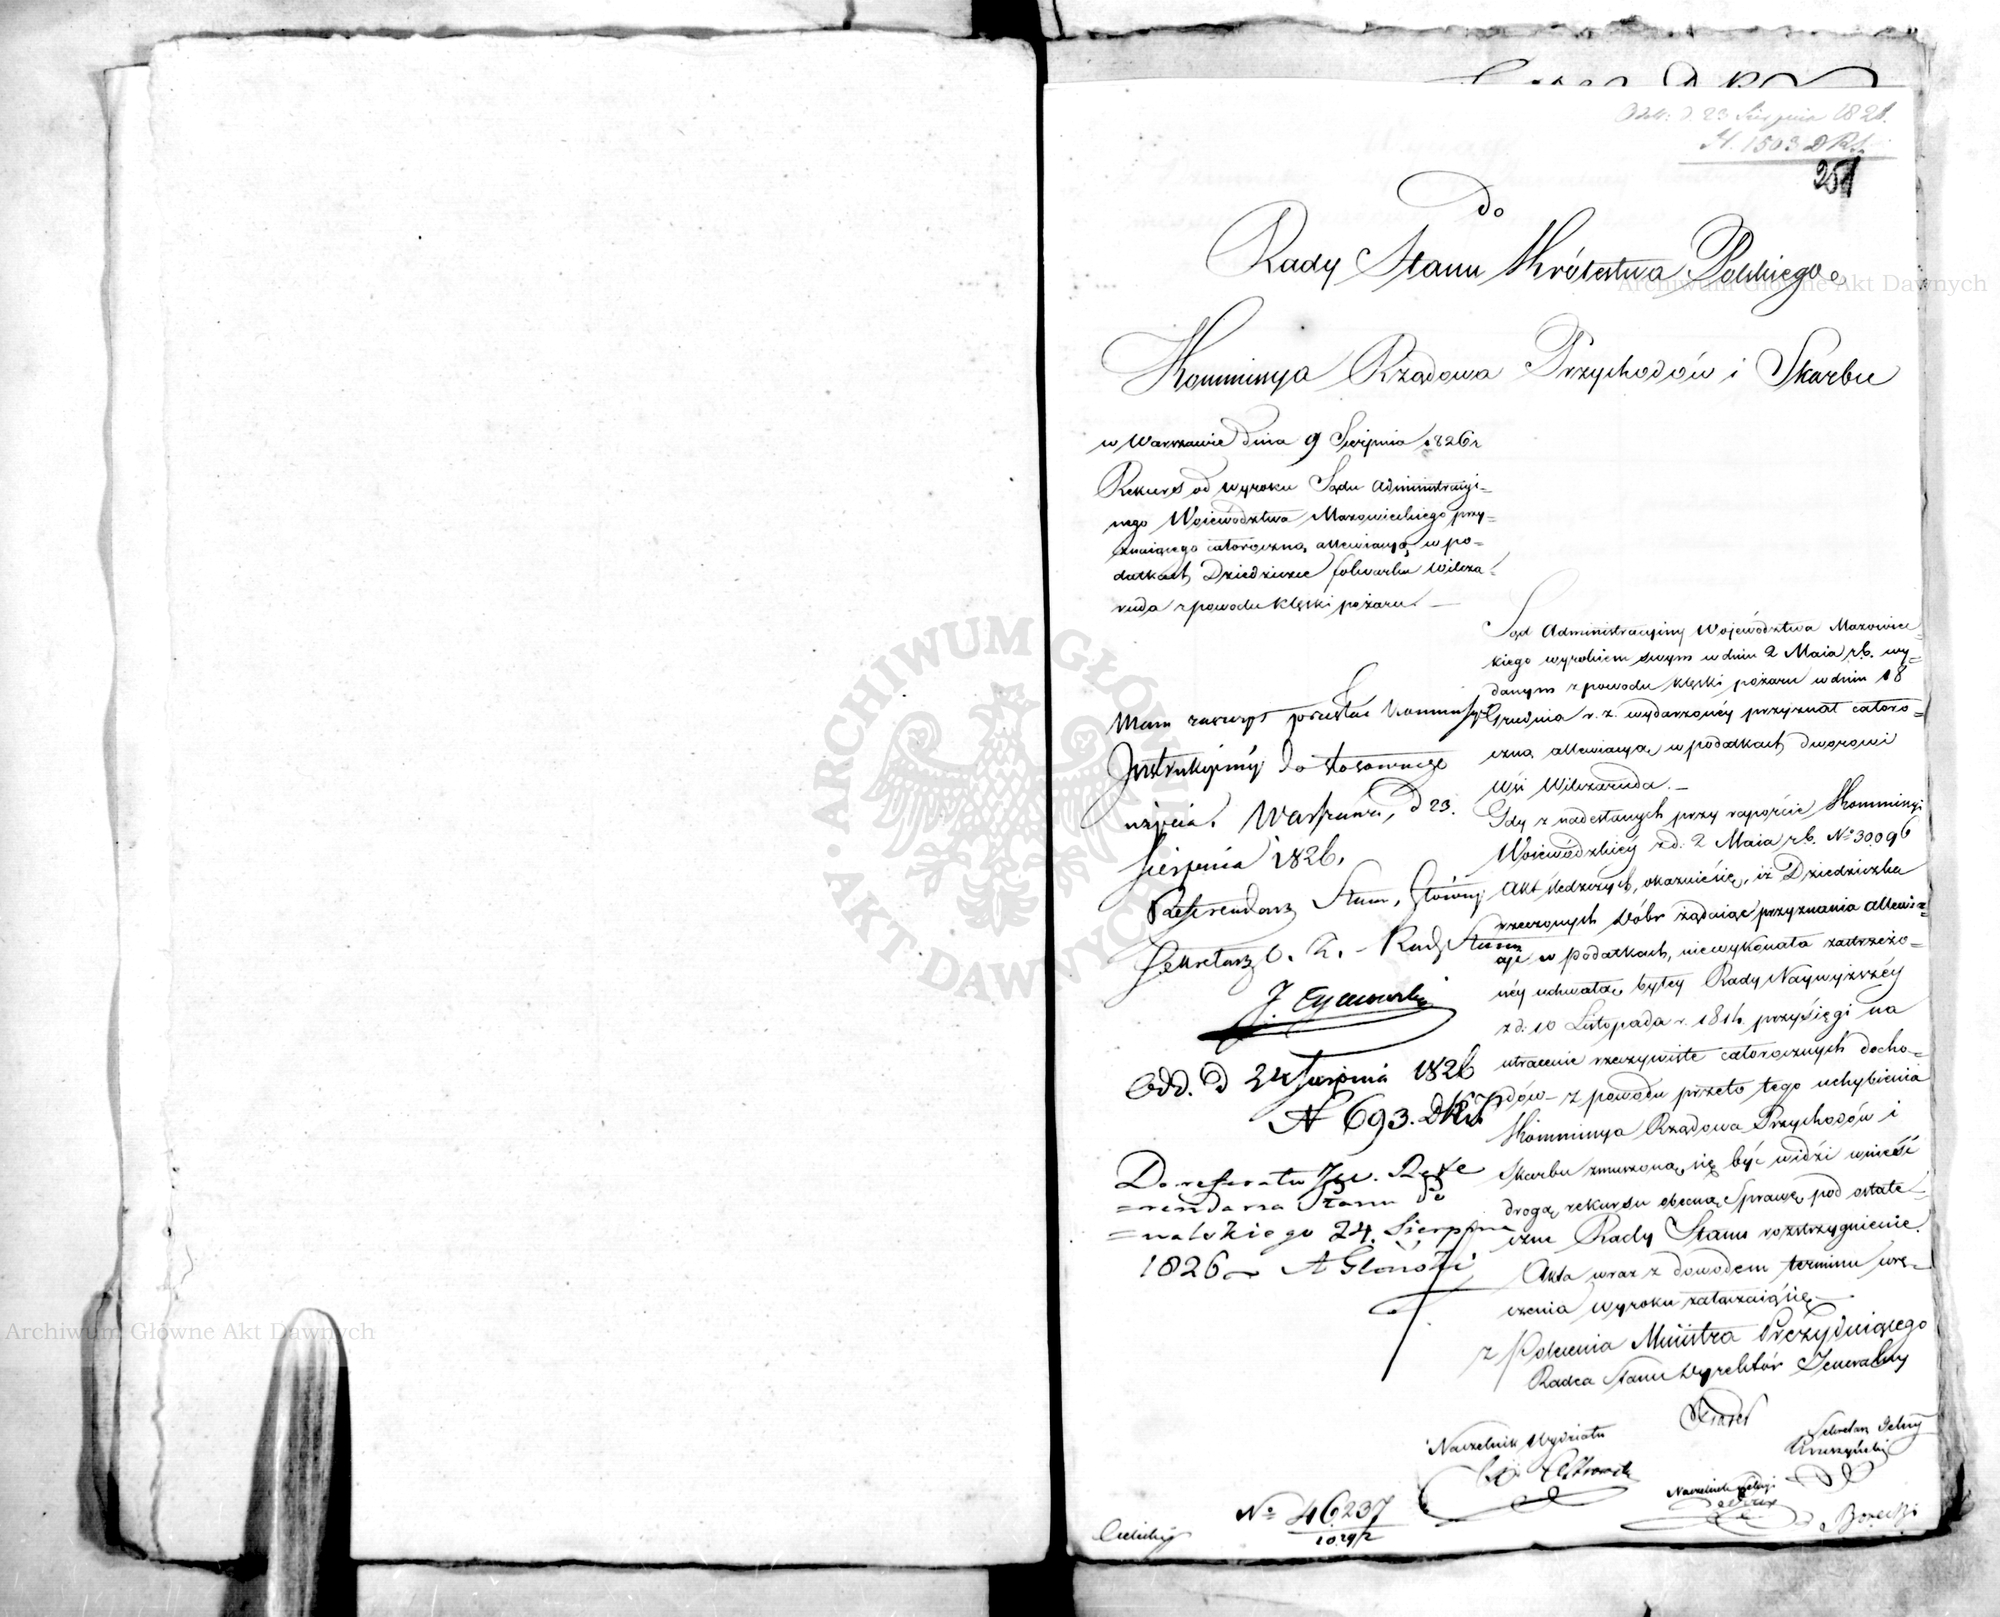 d. 23 Sierpnia 1826.
N. 1503 DRS.
251
Do
Rady Stanu Królestwa Polskiego
Kommissya Rządowa Przychodów i Skarbu
w Warszawie dnia 9 Sierpnia 1826 r
Rekurs od wyroku Sądu Administracyi=
nego Województwa Mazowieckiego przy=
znaiącego całoroczną allewiacyą w po=
datkach Dziedziczce folwarku Wilcza=
ruda z powodu klęski pożaru. —
Sąd Administracyiny Województwa Mazowiec=
kiego wyrokiem swym w dniu 2 Maia r.b. wy=
danym z powodu klęski pożaru w dniu 18
Grudnia r. z. wydarzonéy przyznał całoro=
czną allewiacyą w podatkach dworowi
Wsi Wilczaruda. —
Gdy z nadesłanych przy raporcie Kommissyi
Woiewódzkiey z d. 2 Maia r.b. No 30096
Akt śledczych, okazuie się, iż Dziedziczka
rzeczonych Dóbr żądaiąc przyznania allewia=
cyi w podatkach, niewykonała zastrzeżo=
néy uchwałą byłey Rady Naywyższéy
z d. 10 Listopada r. 1814. przysięgi na
utracenie rzeczywiste całorocznych docho=
dów — z powodu przeto tego uchybienia
Kommissya Rządowa Przychodów i
Skarbu zmuszoną się być widzi wnieść
drogą rekursu obecną Sprawę pod ostate=
czne Rady Stanu rozstrzygnienie.
Akta wraz z dowodem terminu wrę=
czenia wyroku załączaią się —
z Polecenia Ministra Prezyduiącego
Radca Stanu Dyrektór Jeneralny
Naczelnik Wydziału
Sekretarz Jelny
Kruszyński
Naczelnik Sekcyi
Mam zaszczyt przesłać Kommissyi
Instrukcyinéy do stosownego
użycia. Warszawa, d 23.
Sierpnia 1826.
Referendarz Stanu, Główny
Sekretarz Rady Stanu
Odd. d 24 Sierpnia 1826
N 693. DKI
Do referatu JW. Refe
=rendarza Stanu
=nalskiego 24. Sierpnia
1826
No 46237
Archiwum Główne Akt Dawnych
ARCHIWUM GŁÓWNE AKT DAWNYCH
Archiwum Główne Akt Dawnych